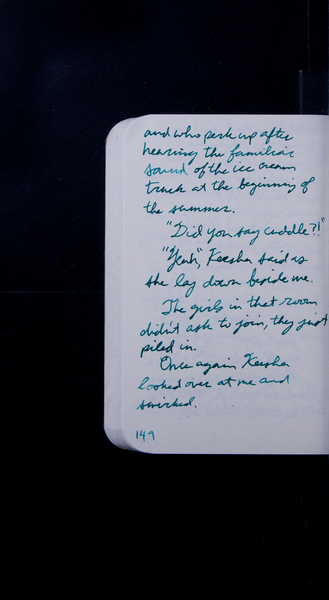 and who perk up after
hearing the familiar
sound of the ice cream
truck at the beginning of
the summer.
"Did you say cuddle?!"
"Yeah", Keesha said as
she lay down beside me.
The girls in that room
didn't ask to join, they just
piled in.
Once again Keesha
looked over at me and
smirked.
149